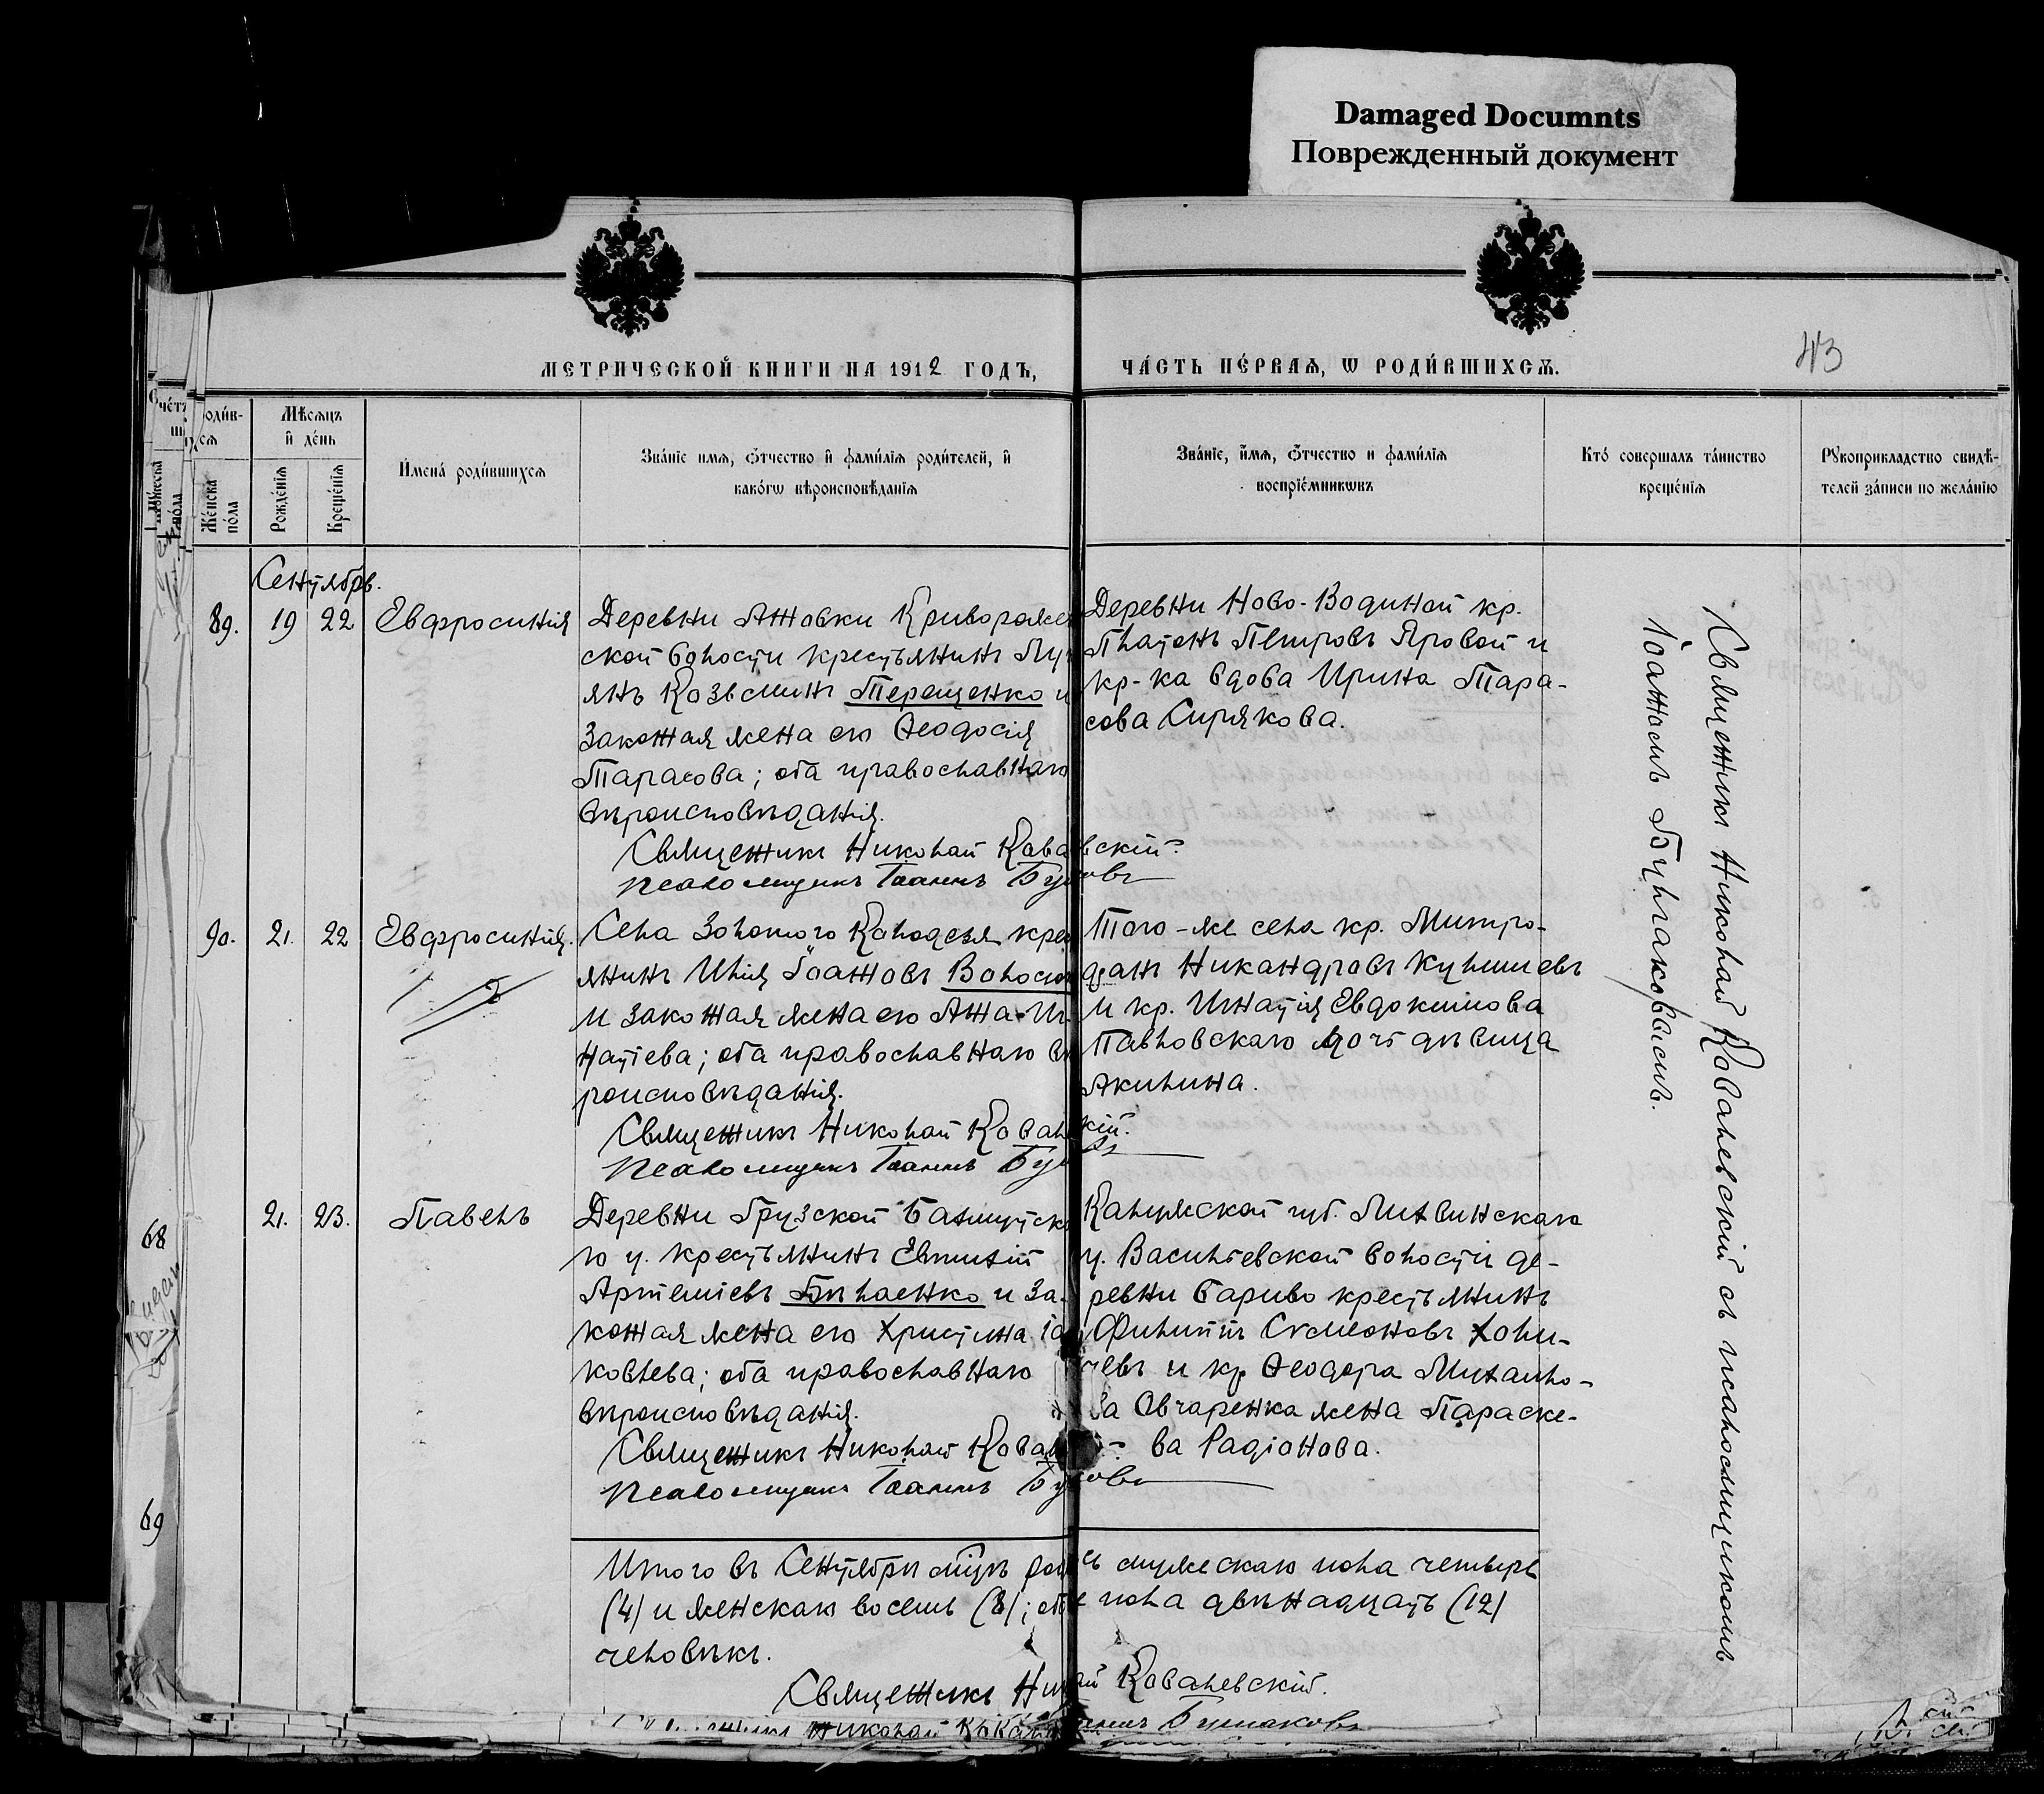 Damaged Documnts
Поврежденный документ
МЕТРИЧЕСКОЙ КНИГИ НА 1912 ГОДЪ,
ЧА́СТЬ ПЕ́РВАѦ, Ѡ РОДИ́ВШИХСѦ.
43
Счетъ
роди́в-
шихсѧ
Мꙋжеска по́ла
Же́нска по́ла
Мѣ́сѧцъ
и҆ де́нь
Рожде́нїѧ
Креще́нїѧ
И҆мена̀ роди́вшихсѧ
Зва́нїе имѧ, ѻ҆́тчество и҆ фами́лїѧ роди́телей, и҆
како́гѡ вѣроисповѣ́данїѧ
Зва́нїе, и҆́мѧ, ѻ҆́тчество и фами́лїѧ
воспрїе́мникѡвъ
Кто́ соверша́лъ та́инство
креще́нїѧ
Рꙋкоприкладство свидѣ́-
телей за́писи по жела́нїю
Сентябрь.
89. 19 22 Евфросинія
Деревни Анновки Криворожс
ской волости крестьянинъ Лу
янъ Козьминъ Терещенко и
законная жена его Ѳеодосія
Тарасова; оба православнаго
вѣроисповѣданія.
Священникъ Николай Ковалевскій
Псаломщикъ Іоаннъ Бу
Деревни Ново-Водяной кр.
Платонъ Петровъ Яровой и
кр-ка вдова Ирина Тара-
сова Сирякова.
90. 21. 22 Евфросинія.
Села Золотого Колодезя крес
янинъ Илія Іоанновъ Волоси
и законная жена его Анна Иг
натіева; оба православнаго вѣ
роисповѣданія.
Священникъ Николай Ковалевскій.
Псаломщикъ Іоаннъ Бу
Того-же села кр. Митро-
фанъ Никандровъ
и кр. Игнатія Евдокимова
Павловскаго дочь дѣвица
Акилина.
68 21. 23. Павелъ
Деревни Грузской Бахмутска
го у. крестьянинъ Евтихій
Артеміевъ Бѣлаенко и за-
конная жена его Христина Іа
ковлева; оба православнаго
вѣроисповѣданія.
Священникъ Николай Кова
Псаломщикъ Іоаннъ Бу
Калужской губ. Лихвинскаго
у. Васильевской волости де-
ревни Бариво крестьянинъ
Филиппъ Сѵмеоновъ Холи-
чевъ и кр Ѳеодора Михайло-
ва Овчаренка жена Параске-
ва Радіонова.
69
Священникъ Николай Ковалевскій съ псаломщикомъ
Іоанномъ Булгаковымъ.
Итого въ Сентябрѣ мѣцѣ род сь мужескаго пола четыре
(4) и женскаго восемь (8); обоего пола двѣнадцать (12)
человѣкъ.
Священникъ Николай Ковалевскій.
Булгаковъ